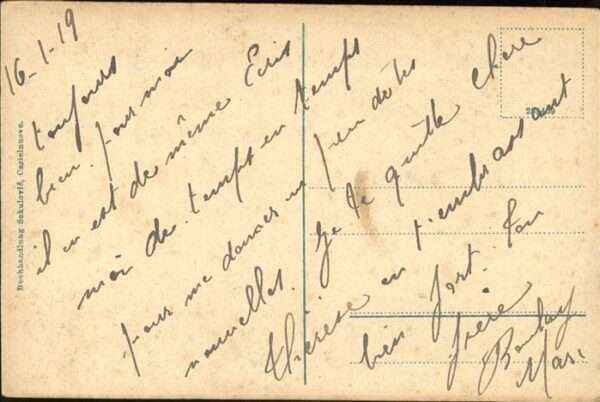 16-1-19
toujours
bien. pour moi
il en est de même Ecris
moi de temps en temps
pour me donner un peu de tes
nouvelles. Je te quitte chère
Thérèse en t'embrassant
bien fort. Ton
frère
Buchhandlung Sekulović, Castelnuovo.